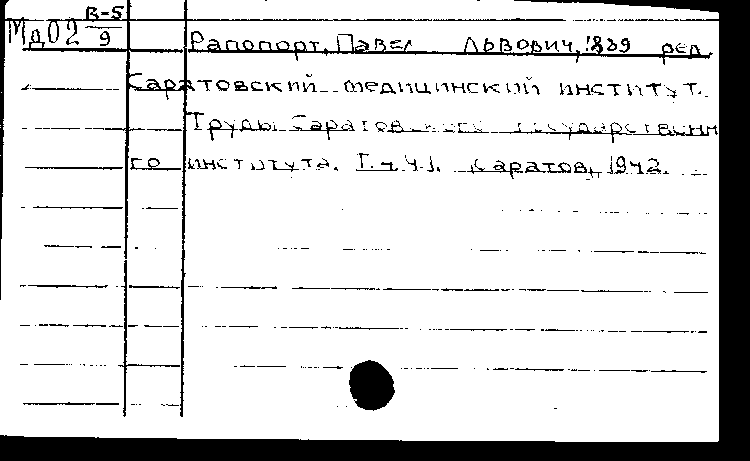 Мд02 В-5/9
Рапопорт, Павел Львович, 1889 ред.
Саратовский медицинский институт.
Труды Саратовского государственн
го института. Т.4.Ч.1. Саратов, 1942.